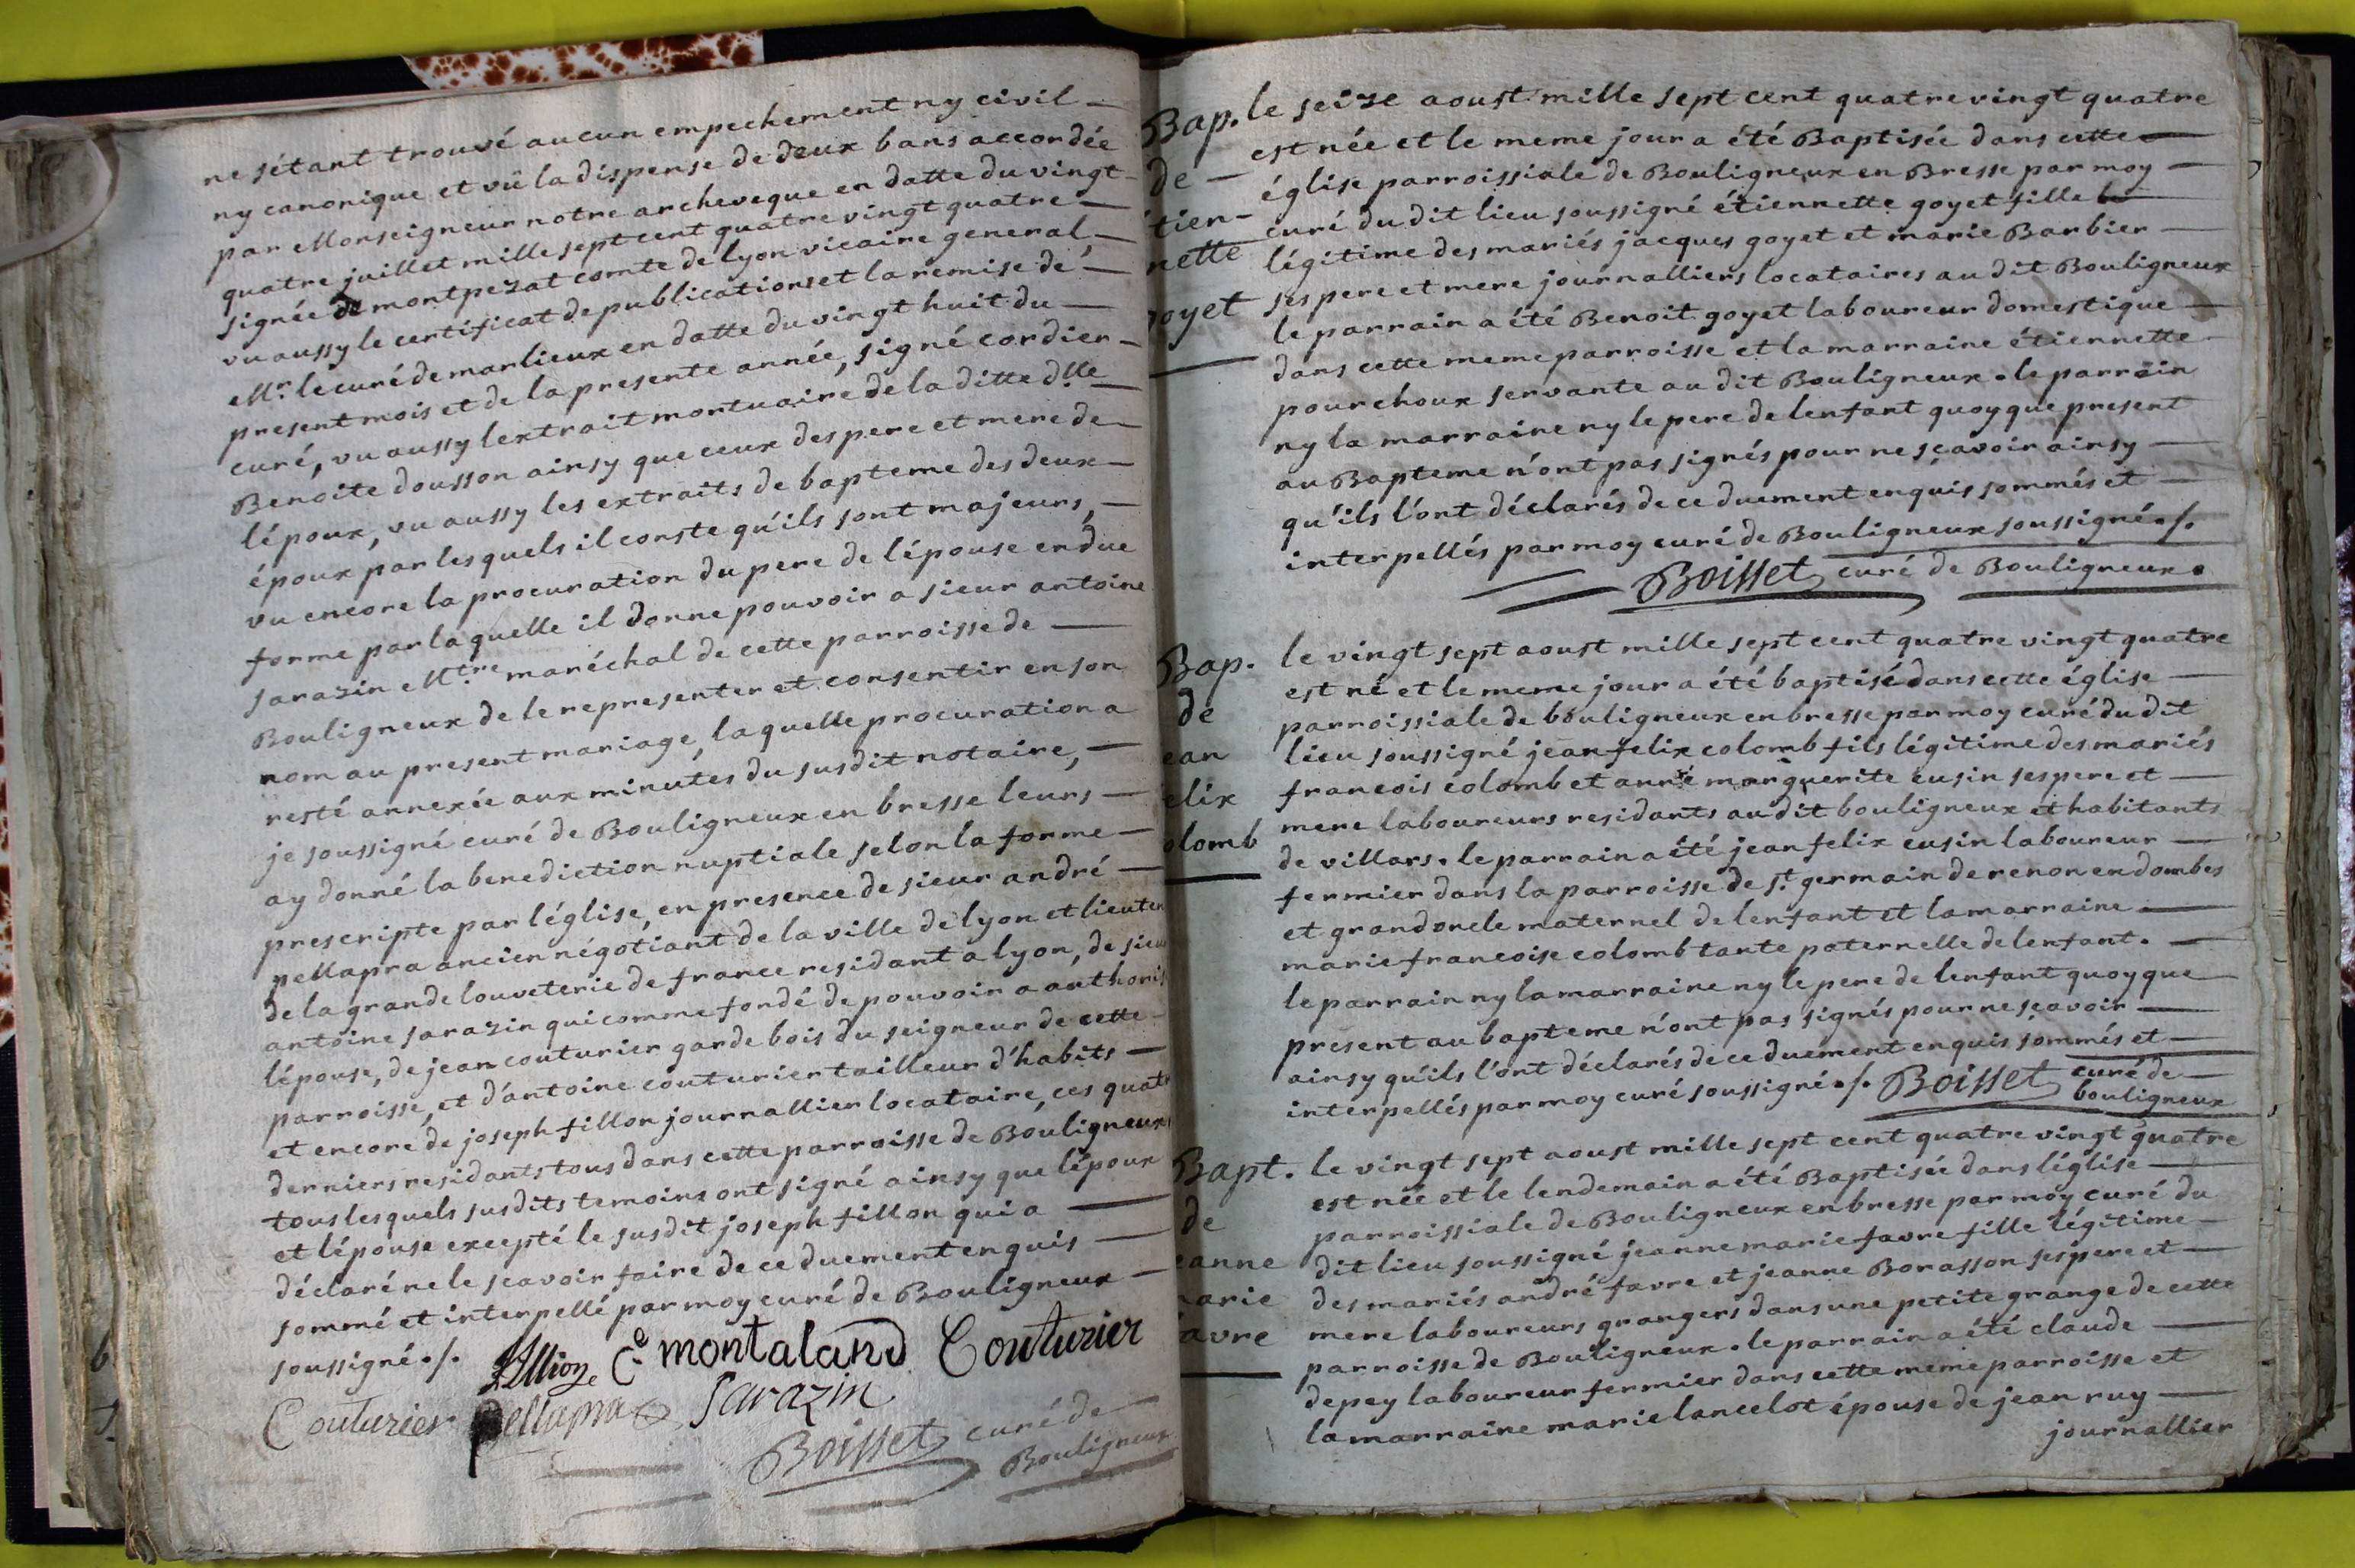 ne sétant trouvé aucun empechement ny civil
ny canonique et vü la dispense de deux bans accordée
par Monseigneur notre archeveque en datte du vingt
quatre juillet mille sept cent quatre vingt quatre
signée de montpezat comte de lyon vicaire general,
vu aussy le certificat de publications et la remise de
Mr. le curé de marlieux en datte du vingt huit du
present mois et de la presente année, signé cordier
curé, vu aussy lextrait mortuaire de la ditte dlle
Benoite dousson ainsy que ceux des pere et mere de
lépoux, vu aussy les extraits de bapteme des deux
époux par lesquels il conste qu'ils sont majeurs,
vu encore la procuration du pere de lépouse en düe
forme par laquelle il donne pouvoir a sieur antoine
sarazin Mtre maréchal de cette parroisse de
Bouligneux de le representer et consentir en son
nom au present mariage, laquelle procuration a
resté annexée aux minutes du susdit notaire,
je soussigné curé de Bouligneux en bresse leurs
ay donné la benediction nuptiale selon la forme
prescripte par léglise, en presence de sieur andré
pellapra ancien négotiant de la ville de lyon et lieuten
de la grande louveterie de france residant a lyon, de sieu
antoine sarazin qui comme fondé de pouvoir a authoris
lépouse, de jean couturier garde bois du seigneur de cette
parroisse, et d'antoine couturier tailleur d'habits
et encore de joseph fillon journallier locataire, ces quatr
derniers residants tous dans cette parroisse de Bouligneux
tous lesquels susdits temoins ont signé ainsy que lépoux
et lépouse excepté le susdit joseph fillon qui a
déclaré ne le scavoir faire de ce duement enquis
sommé et interpellé par moy curé de Bouligneux
soussigné ./. montaland Couturier
Couturier pellapra Sarazin
Boisset curé de
Bouligneux
Bap.
de
tien-
nette
goyet
le seize aoust mille sept cent quatre vingt quatre
est née et le meme jour a été Baptisée dans cette
église parroissiale de Bouligneux en Bresse par moy
curé du dit lieu soussigné étiennette goyet fille
légitime des mariés jacques goyet et marie Barbier
ses pere et mere journalliers locataires au dit Bouligneux
le parrain a été Benoit goyet laboureur domestique
dans cette meme parroisse et la marraine étiennette
pourchoux servante au dit Bouligneux. le parrain
ny la marraine ny le pere de lenfant quoy que present
au Bapteme n'ont pas signés pour ne sçavoir ainsy
qu'ils l'ont déclarés de ce duement enquis sommés et
interpellés par moy curé de Bouligneux soussigné ./.
Boisset curé de Bouligneux.
Bap.
de
ean
elix
olomb
le vingt sept aoust mille sept cent quatre vingt quatre
est né et le meme jour a été baptisé dans cette église
parroissiale de bouligneux en bresse par moy curé du dit
lieu soussigné jean felix colomb fils légitime des mariés
francois colomb et anne marguerite cusin ses pere et
mere laboureurs residants au dit bouligneux et habitants
de villars. le parrain a été jean felix cusin laboureur
fermier dans la parroisse de st. germain de renon en dombes
et grand oncle maternel de lenfant et la marraine
marie francoise colomb tante paternelle de lenfant.
le parrain ny la marraine ny le pere de lenfant quoy que
present au bapteme n'ont pas signés pour ne sçavoir
ainsy qu'ils l'ont déclarés de ce duement enquis sommés et
interpellés par moy curé soussigné ./. Boisset curé de
bouligneux
Bapt.
de
eanne
marie
favre
le vingt sept aoust mille sept cent quatre vingt quatre
est née et le lendemain a été Baptisée dans léglise
parroissiale de Bouligneux en bresse par moy curé du
dit lieu soussigné jeanne marie favre fille légitime
des mariés andré favre et jeanne Borasson ses pere et
mere laboureurs grangers dans une petite grange de cette
parroisse de Bouligneux. le parrain a été claude
depey laboureur fermier dans cette meme parroisse et
la marraine marie lancelot épouse de jean ruy
journallier